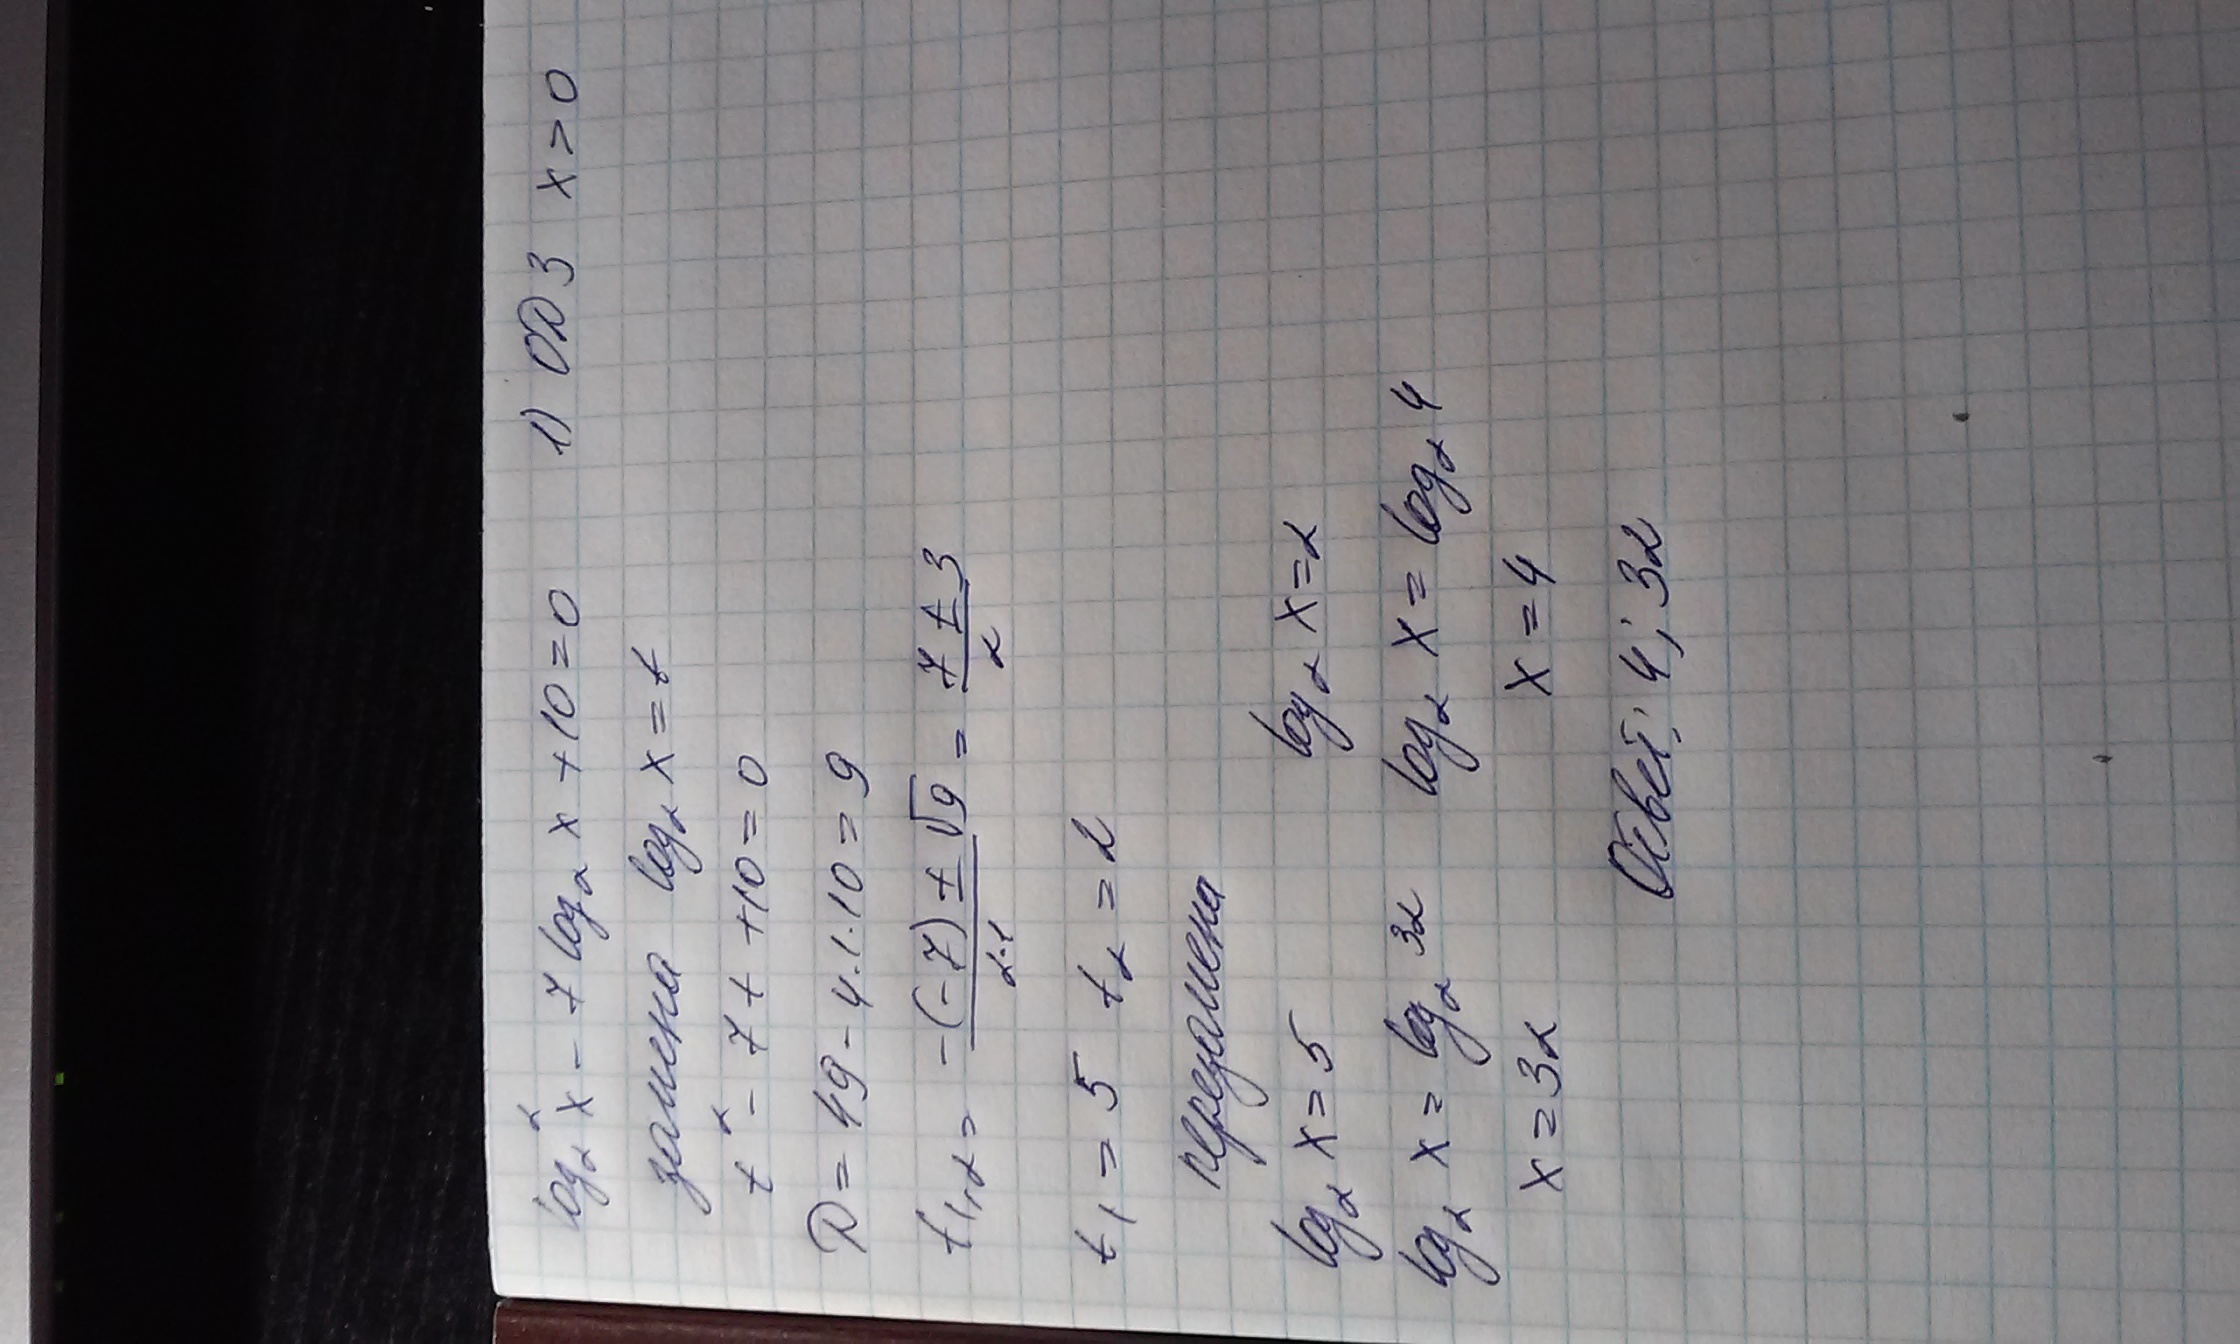 log₂²x − 7 log₂ x + 10 = 0    1) ОДЗ x > 0
замена log₂ x = t
t² − 7t + 10 = 0
D = 49 − 4·1·10 = 9
t₁,₂ = (−(−7) ± √9)/(2·1) = (7 ± 3)/2
t₁ = 5  t₂ = 2
перезамена
log₂ x = 5    log₂ x = 2
log₂ x = log₂ 32    log₂ x = log₂ 4
x = 32    x = 4
Ответ: 4; 32